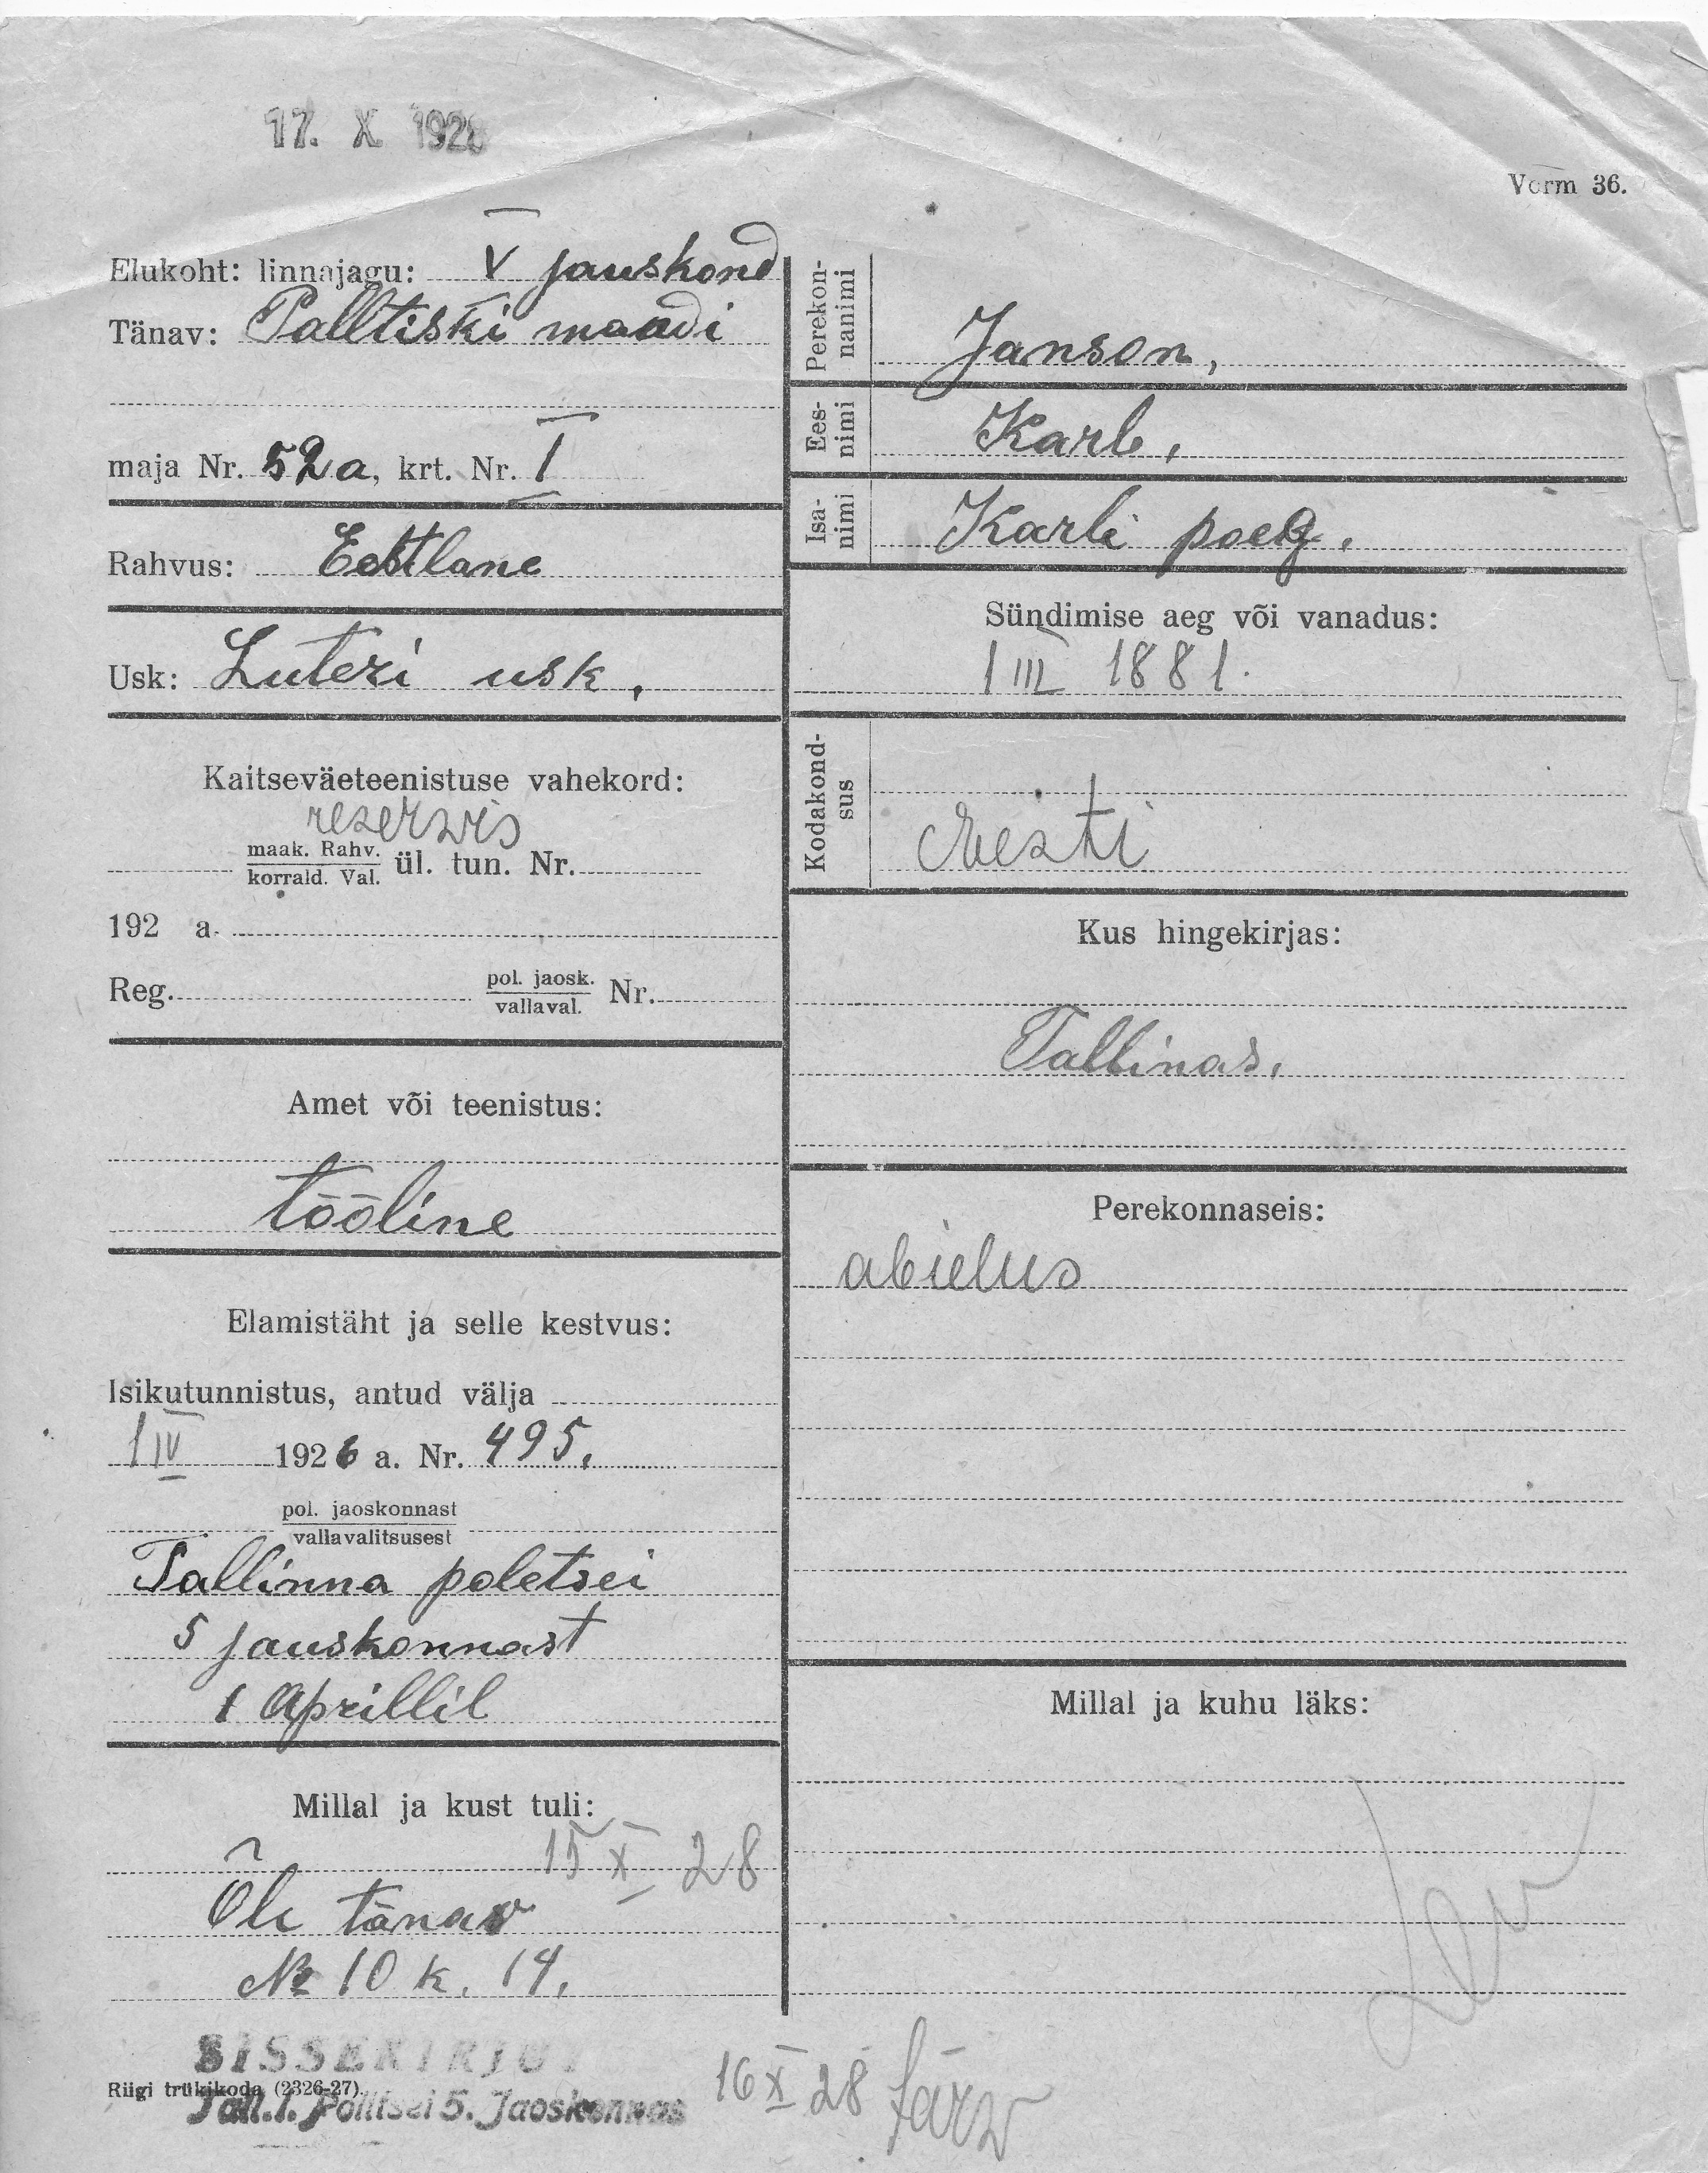 17. X 192
Vorm 36.
Elukoht: linnajagu: V jauskond
Tänav: Palltiski maadi
maja Nr. 52a, krt. Nr. I
Rahvus: Eestlane
Usk: Luteri usk.
Kaitseväeteenistuse vahekord:
reserwis
maak. Rahv. ül. tun. Nr.
korrald. Val.
192 a.
Reg. pol. jaosk. Nr.
vallaval.
Amet või teenistus:
tööline
Elamistäht ja selle kestvus:
Isikutunnistus, antud välja
1 IV 1926 a. Nr. 495.
pol. jaoskonnast
vallavalitsusest
Tallinna poletsei
5 jauskonnast
1 Aprillil
Millal ja kust tuli:
15 X 28
Õle tänav
№ 10 k. 14.
Perekon-
nanimi
Janson,
Ees-
nimi
Karl,
Isa-
nimi
Karli poeg.
Sündimise aeg või vanadus:
1 III 1881.
Kodakond-
sus
Eesti
Kus hingekirjas:
Tallinas,
Perekonnaseis:
abielus
Millal ja kuhu läks:
SISSEKIRJUT
Riigi trükikoda (2326-27).
Tall. Politsei 5. Jaoskonnas
16 X 28 Järw